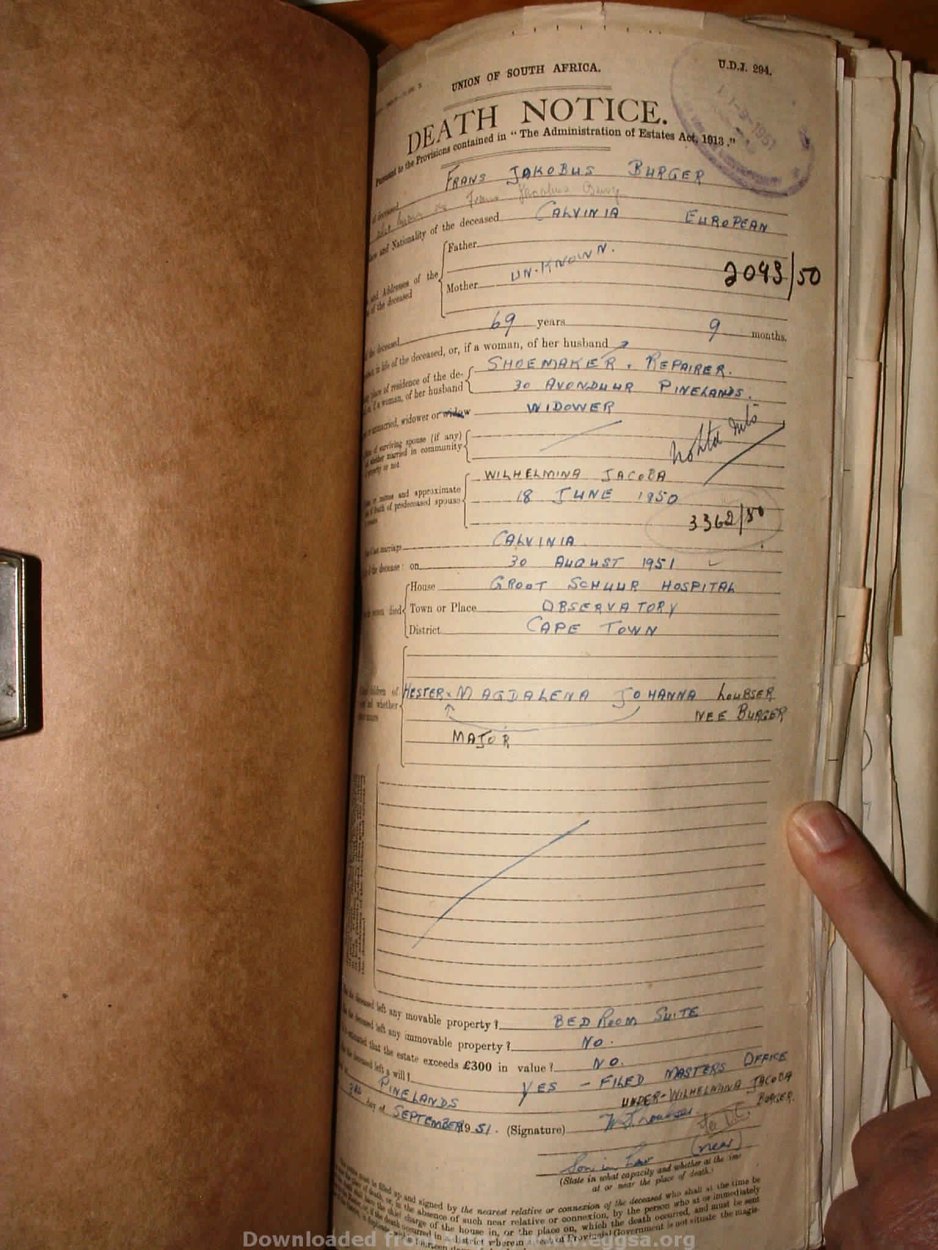 UNION OF SOUTH AFRICA.
U.D.J. 294.
DEATH NOTICE.
Pursuant to the Provisions contained in "The Administration of Estates Act, 1913."
11-9-1951
FRANS JAKOBUS BURGER
of deceased
and Nationality of the deceased CALVINIA EUROPEAN
Father
and Addresses of the
of the deceased
UN-KNOWN.
Mother
2043/50
the deceased 69 years 9 months.
in life of the deceased, or, if a woman, of her husband
SHOEMAKER & REPAIRER.
place of residence of the de-
if a woman, of her husband
30 AVONDUUR PINELANDS.
unmarried, widower or widow WIDOWER
of surviving spouse (if any)
whether married in community
property or not
WILHELMINA JACOBA
or names and approximate
of death of predeceased spouse
18 JUNE 1950
3362/50
marriage CALVINIA
the decease: on 30 AUGUST 1951
House GROOT SCHUUR HOSPITAL
died Town or Place OBSERVATORY
District CAPE TOWN
children of
and whether
HESTER MAGDALENA JOHANNA LOUBSER
NEE BURGER
MAJOR
the deceased left any movable property? BED ROOM SUITE
the deceased left any immovable property? NO.
estimated that the estate exceeds £300 in value? NO.
the deceased left a will? YES - FILED MASTERS OFFICE
UNDER - WILHELMINA JACOBA
BURGER.
PINELANDS
day of SEPTEMBER 1951. (Signature)
Son in Law (near)
(State in what capacity and whether at the time
at or near the place of death.)
filled up and signed by the nearest relative or connexion of the deceased who shall at the time be
place of death, or, in the absence of such near relative or connexion, by the person who at or immediately
shall have the chief charge of the house in, or the place on, which the death occurred, and must be sent
Downloaded from
www.eggsa.org